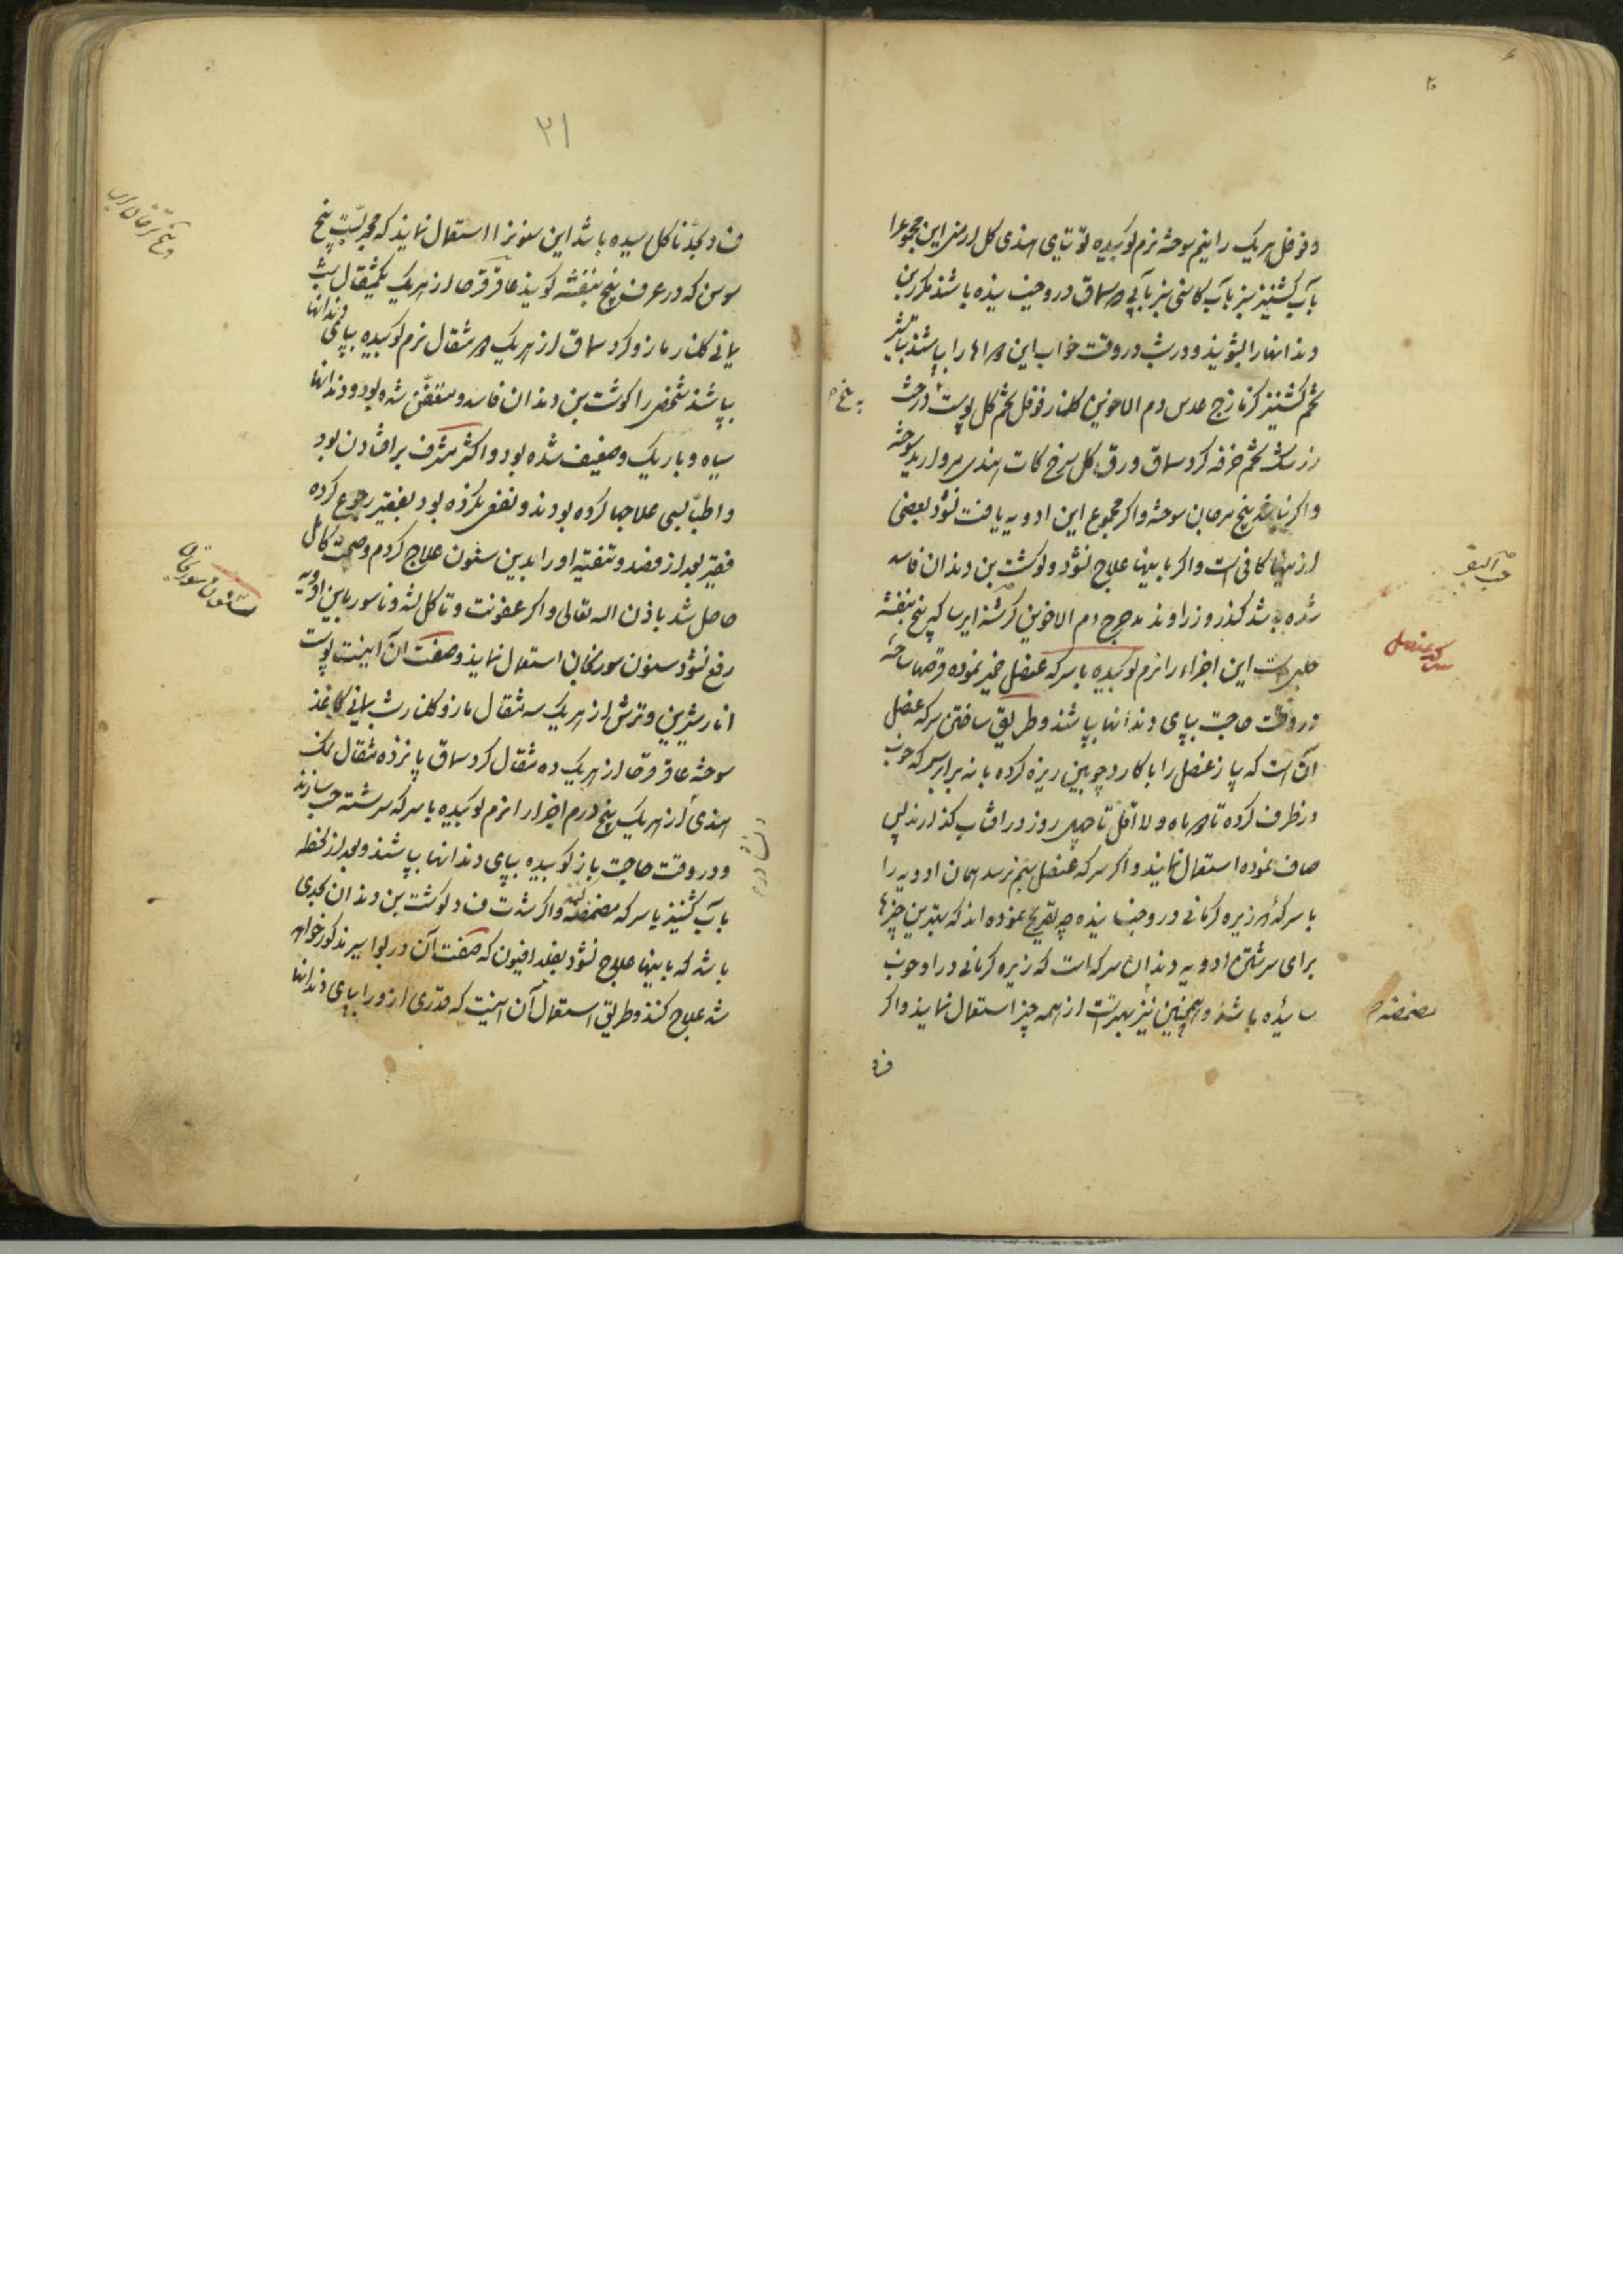 ۲۰
و فوفل هر یک را نیم سوخته نرم کوبیده توتیای هندی کل ارمنی این مجموع را
بآب کشنیز سبز بآب کاسنی سبز بآبی که سماق در و خیسانیده باشند مکرر بن
دندانها را بشویند و در شب در وقت خواب این دواها را بپاشند تباشیر
تخم کشنیز کزمازج عدس دم الاخوین کلنار فوفل تخم کل پوست درخت
زرشک تخم خرفه کرد سماق ورق کل سرخ کات هندی مروارید سوخته
و اکر نباشد بیخ مرجان سوخته و اکر مجموع این ادویه یافت نشود بعضی
از اینها کافی است و اکر باینها علاج نشود و کوشت بن دندان فاسد
شده باشد کندر و زراوند مدحرج دم الاخوین کرسنه ایرسا که بیخ بنفشه
است این اجزاء را نرم کوبیده با سرکه عنصل خمیر نموده قرصها ساخته
در وقت حاجت بپای دندانها بپاشند و طریق ساختن سرکه عنصل
آن است که پیاز عنصل را با کارد چوبین ریزه کرده با نه برابر سرکه خوب
در ظرف کرده تا دو ماه و لا اقل تا چهل روز در افتاب کذارند پس
صاف نموده استعمال نمایند و اکر سرکه عنصل بهم نرسد همان ادویه را
با سرکه که زیره کرمانی در و خیسانیده چه تصریح نموده اند که بهترین چیزها
برای سرشتن ادویه دندان سرکه است که زیره کرمانی در او خوب
سائیده باشند و همچنین نیز بهتر است از همه چیز استعمال نمایند و اکر
فساد
سرکه عنصل
مضمضه
۲۱
فساد بحد تاکل رسیده باشد این سنون را استعمال نمایند که مجرب است بیخ
سوسن که در عرف بیخ بنفشه کویند عاقرقرحا از هر یک یکمثقال شب
یمانی کلنار مازو کرد سماق از هر یک دو مثقال نرم کوبیده بپای دندانها
بپاشند شخصی را کوشت بن دندان فاسد و متعفن شده بود و دندانها
سیاه و باریک و ضعیف شده بود و اکثر مشرف بر افتادن بود
و اطبا بسی علاجها کرده بودند و نفعی نکرده بود بفقیر رجوع کرده
فقیر بعد از فصد و تنقیه او را بدین سنون علاج کردم و صحت کامل
حاصل شد باذن اله تعالی و اکر عفونت و تاکل لثه و ناسور باین ادویه
رفع نشود سنون سورنجان استعمال نمایند و صفت آن اینست پوست
انار شیرین و ترش از هر یک سه مثقال مازو کلنار شب یمانی کاغذ
سوخته عاقرقرحا از هر یک ده مثقال کرد سماق پانزده مثقال نمک
هندی از هر یک پنج درم اجزا را نرم کوبیده با سرکه سرشته حب سازند
و در وقت حاجت باز کوبیده بپای دندانها بپاشند و بعد از لحظه
بآب کشنیز یا سرکه مضمضه کنند و اکر شدت فساد کوشت بن دندان بحدی
باشد که باینها علاج نشود بفلدافیون که صفت آن در بواسیر مذکور خواهد
شد علاج کنند و طریق استعمال آن اینست که قدری از و را بپای دندانها
سنون سورنجان